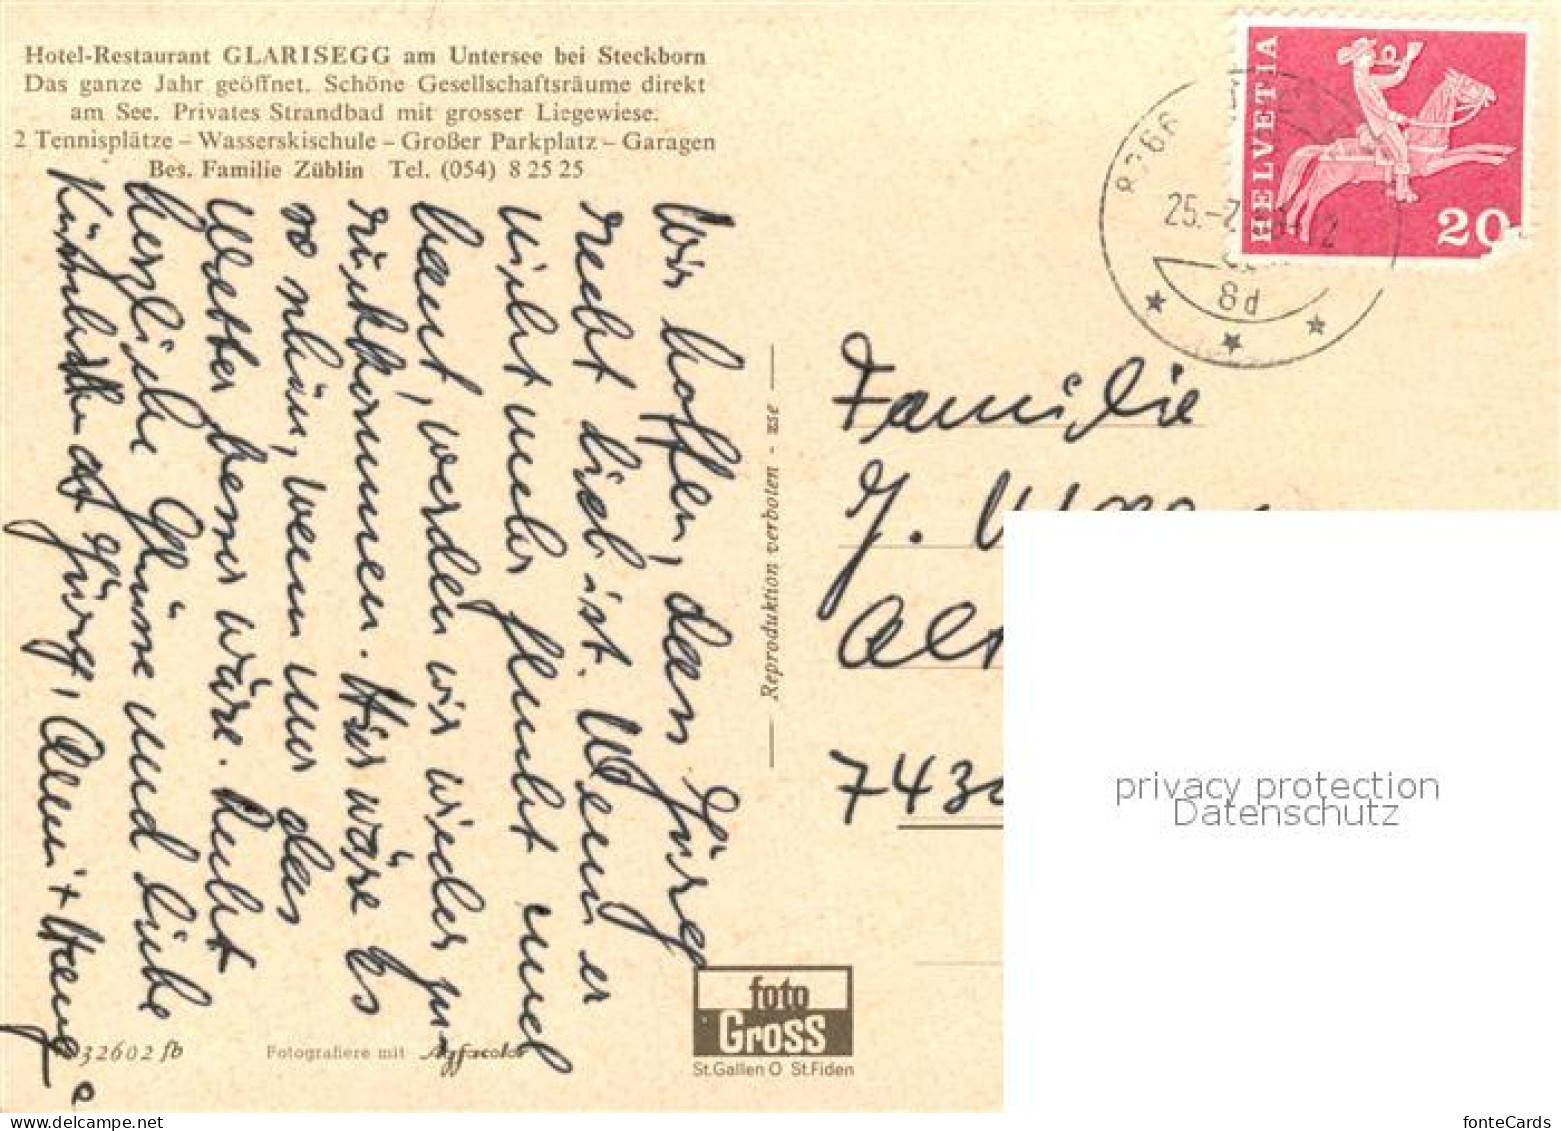 Hotel-Restaurant GLARISEGG am Untersee bei Steckborn
Das ganze Jahr geöffnet. Schöne Gesellschaftsräume direkt
am See. Privates Strandbad mit grosser Liegewiese.
2 Tennisplätze – Wasserskischule – Großer Parkplatz – Garagen
Bes. Familie Züblin Tel. (054) 8 25 25
Wir hoffen, dass Jürg
recht lieb ist. Wenn er
nicht mehr flucht und
haut, werden wir wieder
zurückkommen. Hier wäre es
so schön, wenn nur das
Wetter besser wäre. Recht
herzliche Grüsse und liebe
Küsschen an Jürg,
Reproduktion verboten - zse
32602 fb
Fotografiere mit Agfacolor
foto
Gross
St.Gallen O St.Fiden
HELVETIA
20
25.-2
12
8d
Familie
J.
7430
privacy protection
Datenschutz
fonteCards